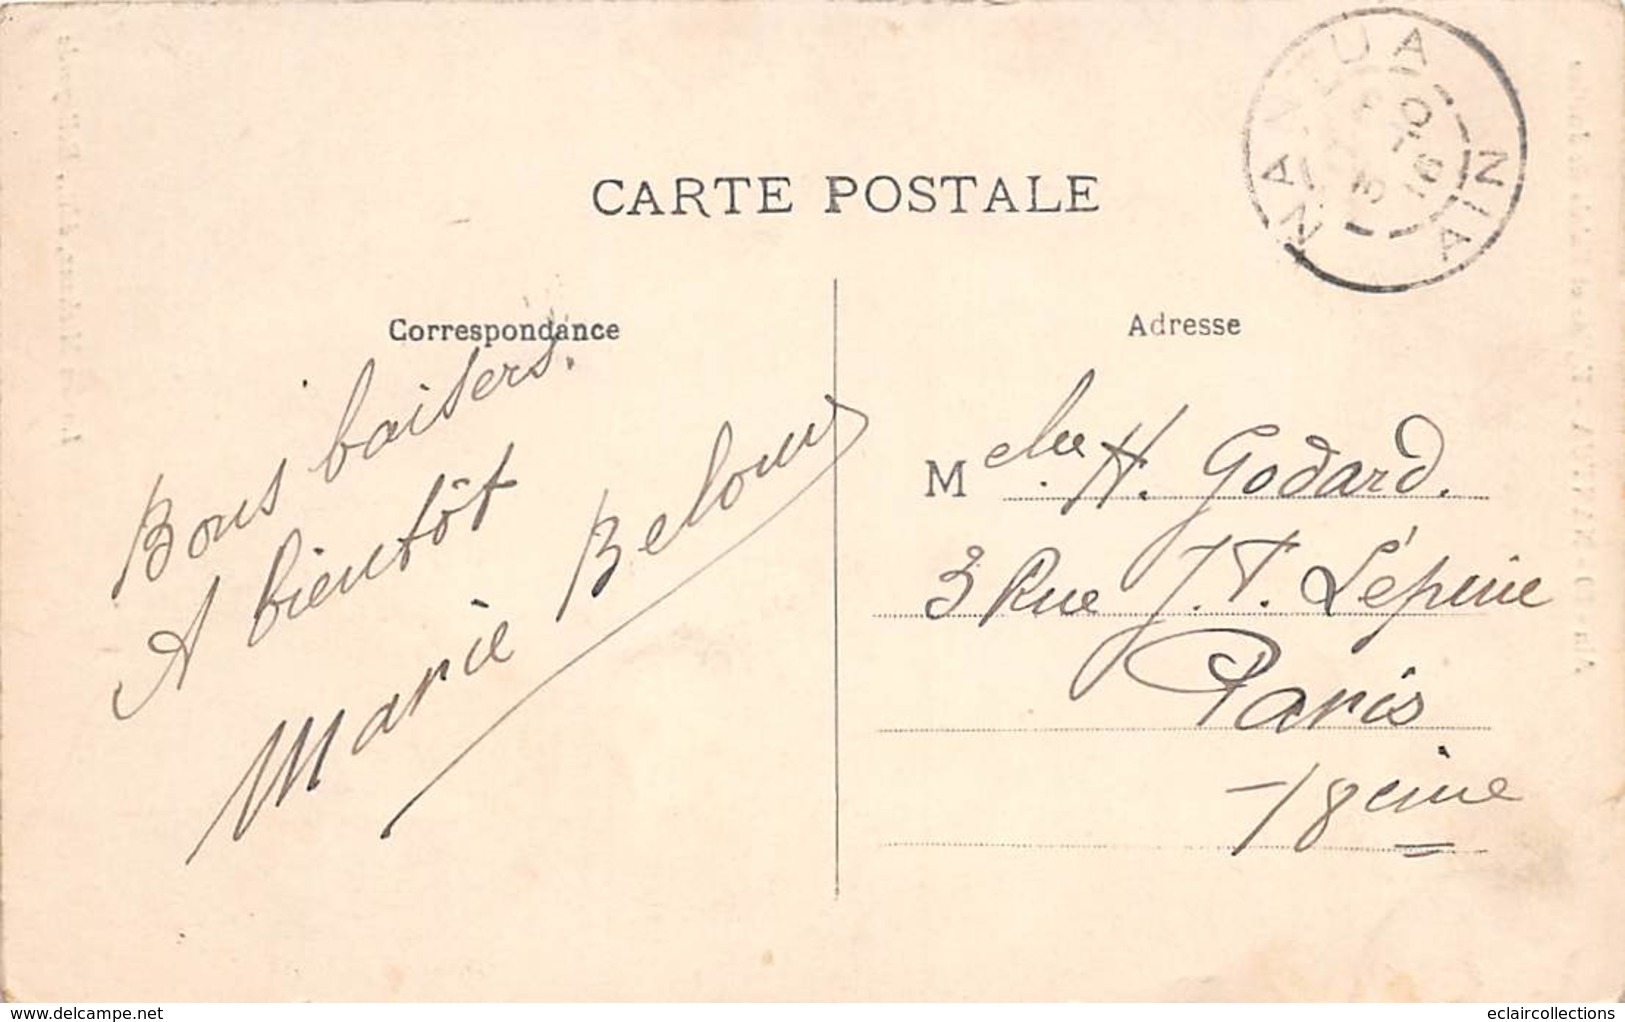 CARTE POSTALE
NANTUA
AIN
Correspondance
Bons baisers.
A bientôt
Marie
Adresse
Melle H. Godard.
3 Rue J. F. Lépine
Paris
18eime
www.delcampe.net
eclaircollections